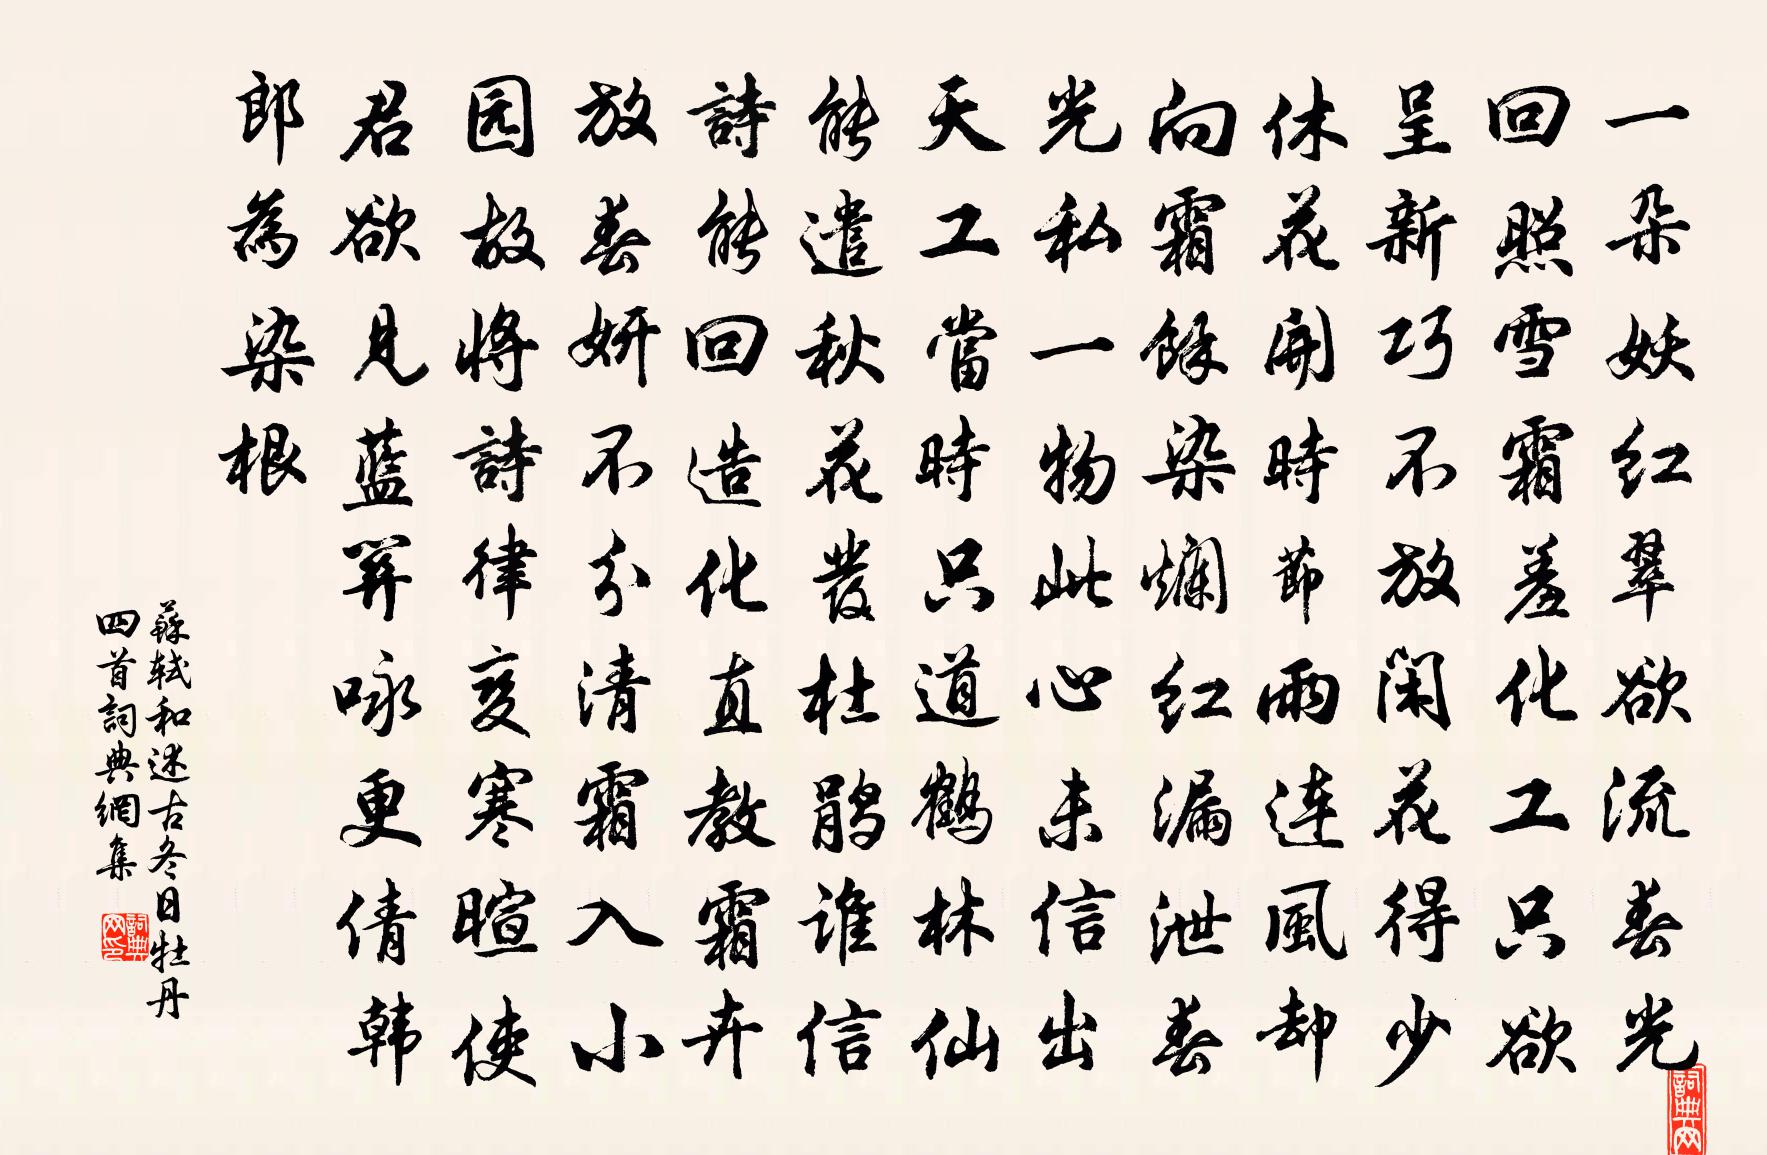 一朵妖红翠欲流春光
回照雪霜羞化工只欲
呈新巧不放闲花得少
休花開時節雨連風却
向霜餘染爛红漏泄春
光私一物此心未信出
天工當時只道鶴林仙
能遣秋花發杜鹃谁信
詩能回造化直教霜卉
放春妍不分清霜入小
园故将詩律变寒暄使
君欲見藍關咏更倩韩
郎為染根
蘇軾和述古冬日牡丹
四首詞典網集
詞典网
詞典网